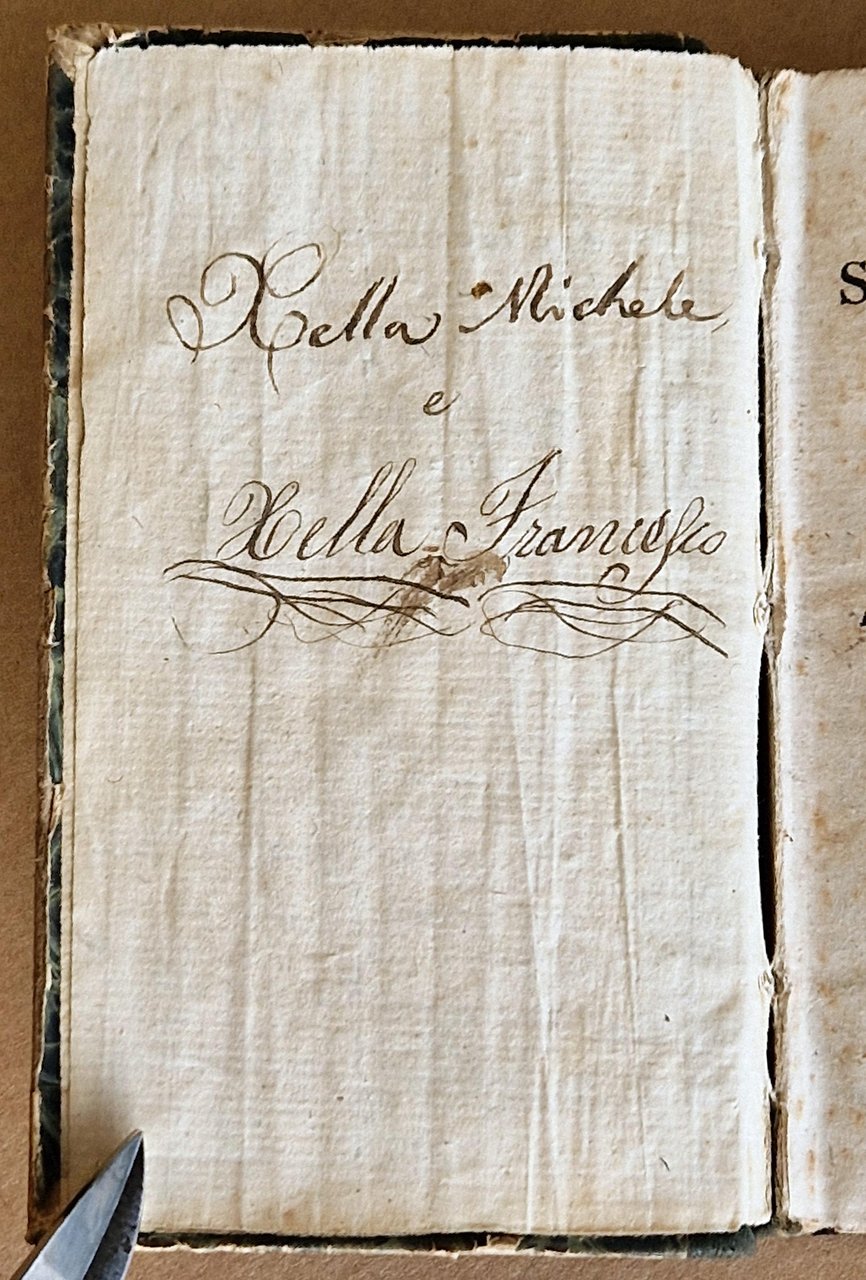 Xella Michele,
e
Xella Francesco
S